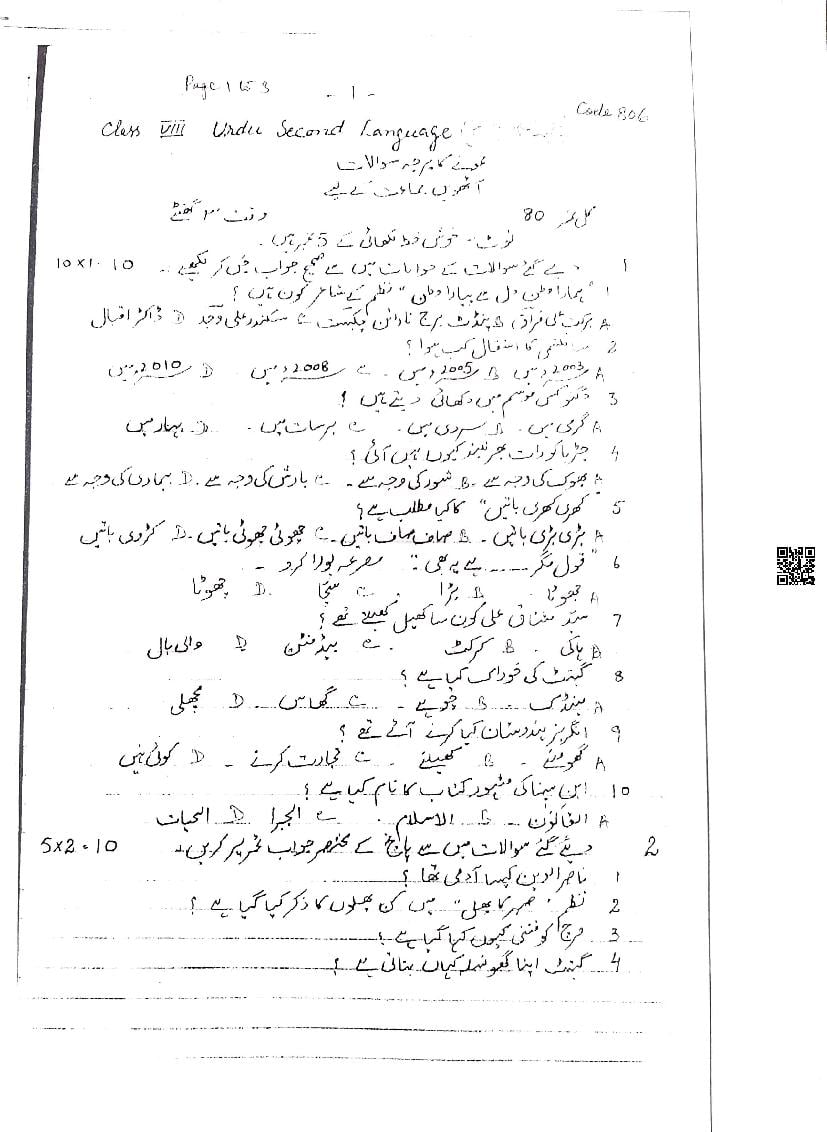 Page 1 to 3
- 1 -
Code 806
Class VIII Urdu Second Language
نمونے کا پرچہ سوالات
آٹھویں جماعت کے لیے
کل نمبر 80 وقت ۳ گھنٹے
نوٹ - خوش خط لکھائی کے 5 نمبر ہیں۔
1 دیے گئے سوالات کے جوابات میں سے صحیح جواب چن کر لکھیے۔ 10x1=10
1 "ہمارا وطن دل سے پیارا وطن" نظم کے شاعر کون ہیں؟
A فراق B پنڈت برج نارائن چکبست C سکندر علی وجد D ڈاکٹر اقبال
2 کا انتقال کب ہوا؟
A 2003ء میں B 2005ء میں C 2008ء میں D 2010ء میں
3 کس موسم میں دکھائی دیتے ہیں؟
A گرمی میں B سردی میں۔ C برسات میں۔ D بہار میں
4 چڑیا کو رات بھر نیند کیوں نہیں آئی؟
A بھوک کی وجہ سے۔ B شور کی وجہ سے۔ C بارش کی وجہ سے۔ D بیماری کی وجہ سے
5 "کھری کھری باتیں" کا کیا مطلب ہے؟
A بڑی بڑی باتیں۔ B صاف صاف باتیں۔ C چھوٹی چھوٹی باتیں۔ D کڑوی باتیں
6 "قول مگر ..... ہے یہ بھی" مصرعہ پورا کرو۔
A جھوٹا B بڑا C سچا D چھوٹا
7 سید مشتاق علی کون سا کھیل کھیلتے تھے؟
A ہاکی۔ B کرکٹ C بیڈمنٹن D والی بال
8 کی خوراک کیا ہے؟
A مینڈک B چوہے C گھاس D مچھلی
9 انگریز ہندوستان کیا کرنے آئے تھے؟
A گھومنے۔ B کھیلنے C تجارت کرنے۔ D کوئی نہیں
10 ابن سینا کی مشہور کتاب کا نام کیا ہے؟
A القانون۔ B الاسلام۔ C الجبرا D الحیات
2 دیئے گئے سوالات میں سے پانچ کے مختصر جواب تحریر کریں۔ 5x2=10
1 ناصر الدین کیسا آدمی تھا؟
2 نظم "صبر کا پھل" میں کن پھلوں کا ذکر کیا گیا ہے؟
3 کو کیوں کہا گیا ہے؟
4 اپنا گھونسلہ کہاں بناتی ہے؟